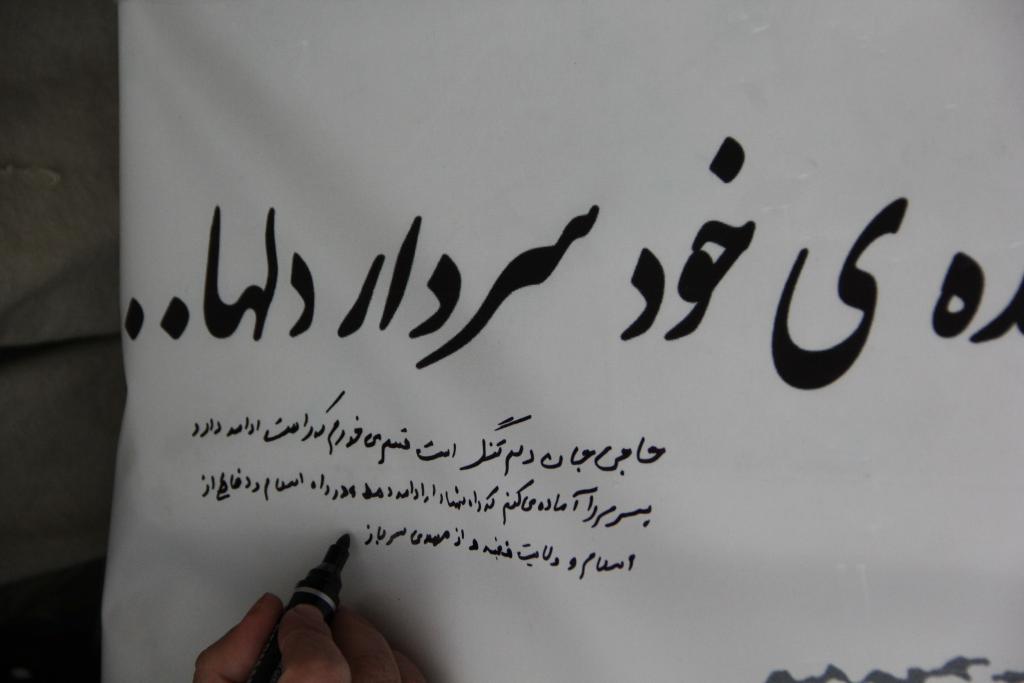 ده ی خود سردار دلها..
حاجی جان دلم تنگ است قسم می خورم که راهت ادامه دارد
پسرم را آماده می کنم که راه شما را ادامه دهد و در راه اسلام و دفاع از
اسلام و ولایت فقیه و از مهدی سرباز